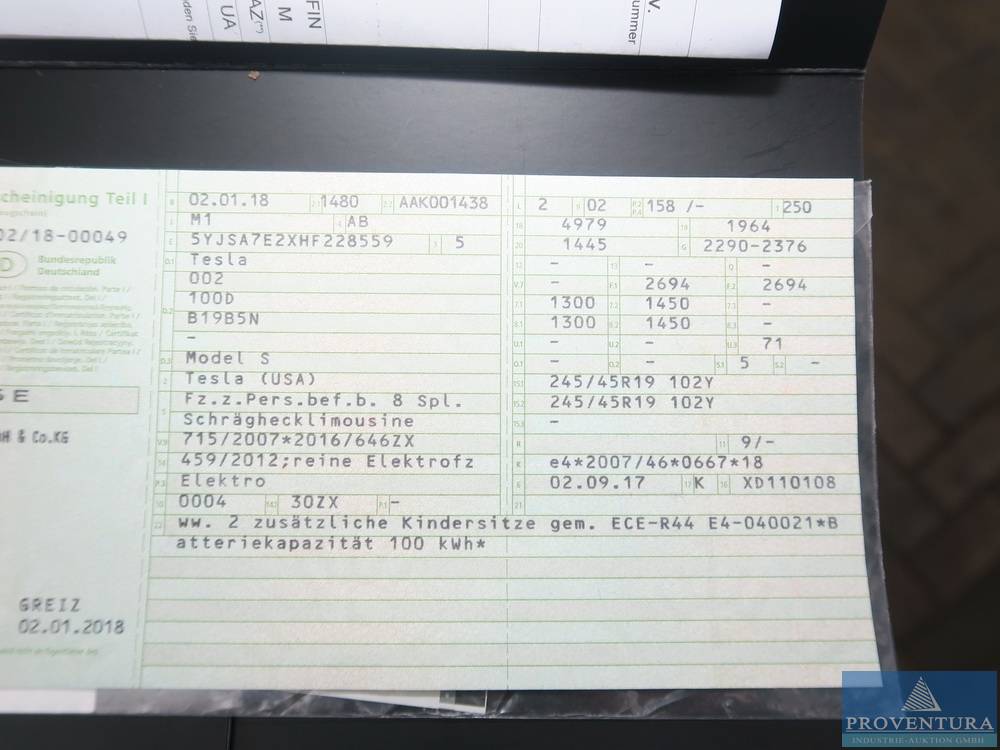 FIN
M
AZ(**)
UA
V.
ummer
cheinigung Teil I
02/18-00049
D
Bundesrepublik
Deutschland
S E
H & Co.KG
GREIZ
02.01.2018
B 02.01.18 2.1 1480 2.2 AAK001438
J M1 4 AB
E 5YJSA7E2XHF228559 3 5
D.1 Tesla
002
D.2 100D
B19B5N
-
D.3 Model S
2 Tesla (USA)
5 Fz.z.Pers.bef.b. 8 Spl.
Schräghecklimousine
V.9 715/2007*2016/646ZX
14 459/2012;reine Elektrofz
P.3 Elektro
10 0004 14.1 30ZX P.1 -
L 2 9 02 P.2 P.4 158 /- T 250
18 4979 19 1964
20 1445 G 2290-2376
12 - 13 - Q -
V.7 - F.1 2694 F.2 2694
7.1 1300 7.2 1450 7.3 -
8.1 1300 8.2 1450 8.3 -
U.1 - U.2 - U.3 71
O.1 - O.2 - S.1 5 S.2 -
15.1 245/45R19 102Y
15.2 245/45R19 102Y
15.3 -
R 11 9/-
K e4*2007/46*0667*18
6 02.09.17 17 K 16 XD110108
21
22 ww. 2 zusätzliche Kindersitze gem. ECE-R44 E4-040021*B
atteriekapazität 100 kWh*
PROVENTURA
INDUSTRIE-AUKTION GMBH